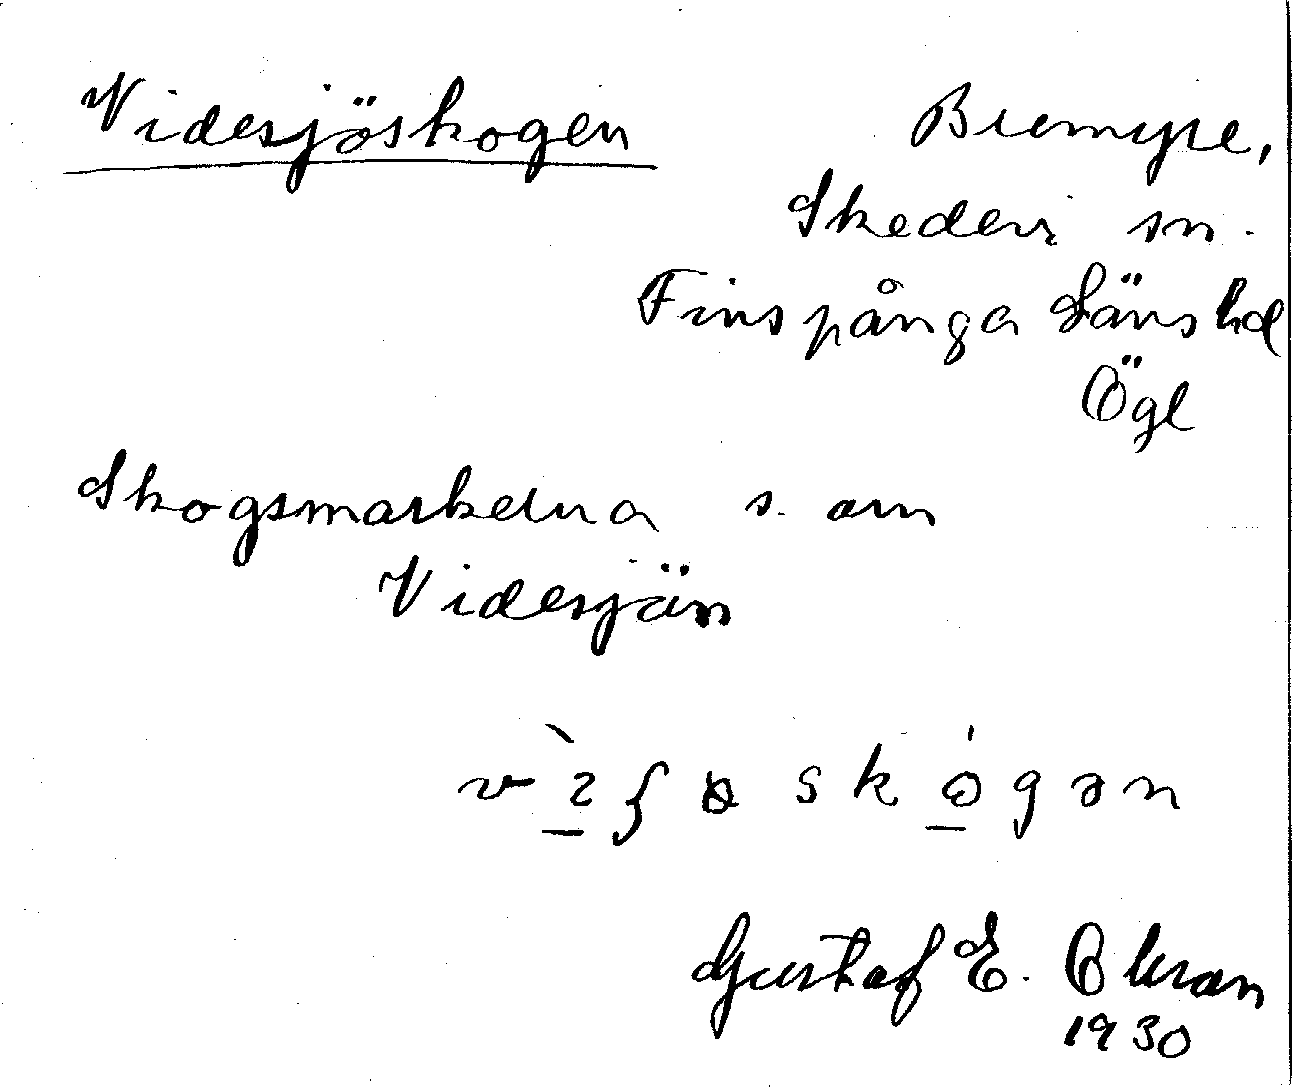 Videsjöskogen
Bremyre,
Skedevi sn.
Finspånga Läns hd
Ögl
Skogsmarkerna s. om
Videsjön
Gustaf E. Olsson
1930